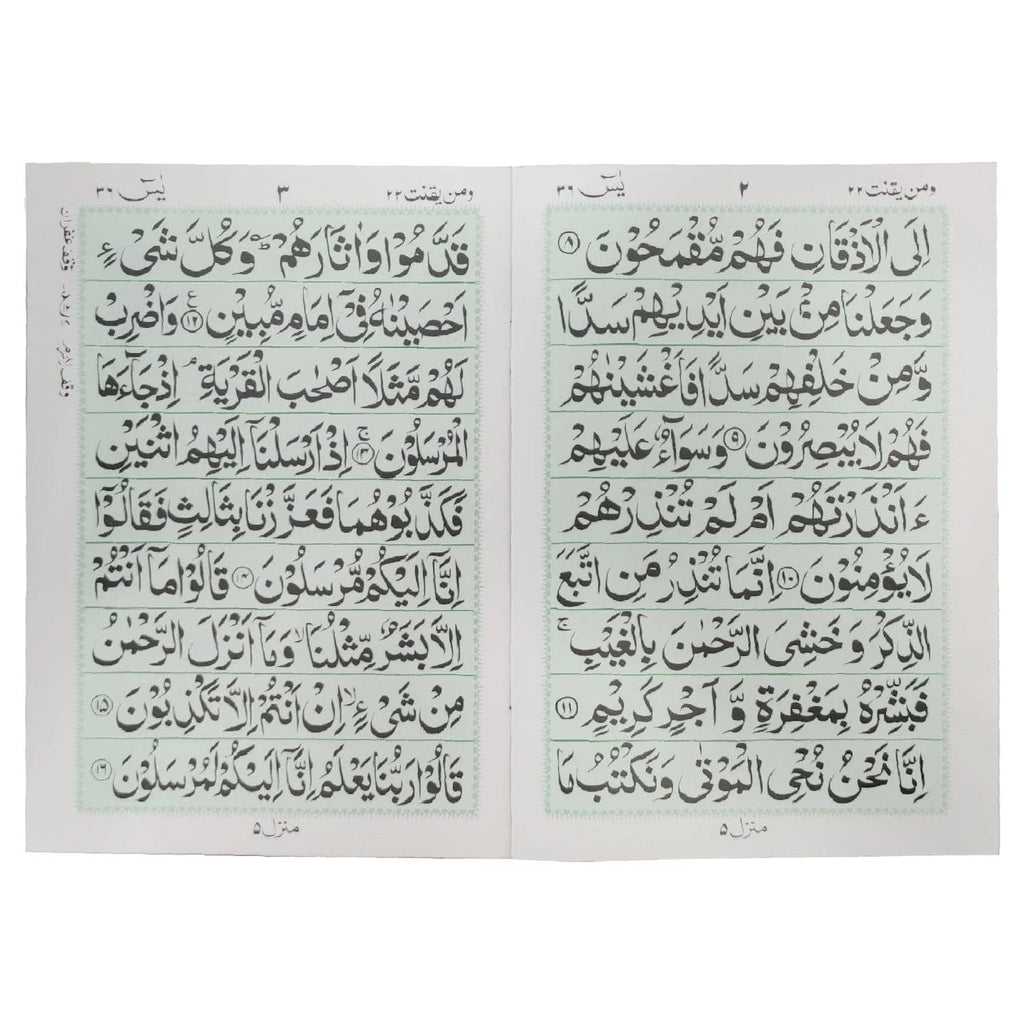 ومن يقنت ٢٢
٢
يٰسٓ ٣٦
اِلَى الْاَذْقَانِ فَهُمْ مُّقْمَحُوْنَ ﴿۸﴾
وَجَعَلْنَا مِنْۢ بَيْنِ اَيْدِيْهِمْ سَدًّا
وَّمِنْ خَلْفِهِمْ سَدًّا فَاَغْشَيْنٰهُمْ
فَهُمْ لَا يُبْصِرُوْنَ ﴿۹﴾ وَسَوَآءٌ عَلَيْهِمْ
ءَاَنْذَرْتَهُمْ اَمْ لَمْ تُنْذِرْهُمْ
لَا يُؤْمِنُوْنَ ﴿۱۰﴾ اِنَّمَا تُنْذِرُ مَنِ اتَّبَعَ
الذِّكْرَ وَخَشِيَ الرَّحْمٰنَ بِالْغَيْبِ ۚ
فَبَشِّرْهُ بِمَغْفِرَةٍ وَّاَجْرٍ كَرِيْمٍ ﴿۱۱﴾
اِنَّا نَحْنُ نُحْيِ الْمَوْتٰى وَنَكْتُبُ مَا
منزل ۵
ومن يقنت ٢٢
٣
يٰسٓ ٣٦
قَدَّمُوْا وَاٰثَارَهُمْ ؕ وَكُلَّ شَيْءٍ
اَحْصَيْنٰهُ فِيْٓ اِمَامٍ مُّبِيْنٍ ﴿۱۲﴾ ع وَاضْرِبْ
لَهُمْ مَّثَلًا اَصْحٰبَ الْقَرْيَةِ ۘ اِذْ جَآءَهَا
الْمُرْسَلُوْنَ ﴿۱۳﴾ ۚ اِذْ اَرْسَلْنَآ اِلَيْهِمُ اثْنَيْنِ
فَكَذَّبُوْهُمَا فَعَزَّزْنَا بِثَالِثٍ فَقَالُوْٓا
اِنَّآ اِلَيْكُمْ مُّرْسَلُوْنَ ﴿۱۴﴾ قَالُوْا مَآ اَنْتُمْ
اِلَّا بَشَرٌ مِّثْلُنَا ۙ وَمَآ اَنْزَلَ الرَّحْمٰنُ
مِنْ شَيْءٍ ۙ اِنْ اَنْتُمْ اِلَّا تَكْذِبُوْنَ ﴿۱۵﴾
قَالُوْا رَبُّنَا يَعْلَمُ اِنَّآ اِلَيْكُمْ لَمُرْسَلُوْنَ ﴿۱۶﴾
منزل ۵
وقف غفران
وقف لازم